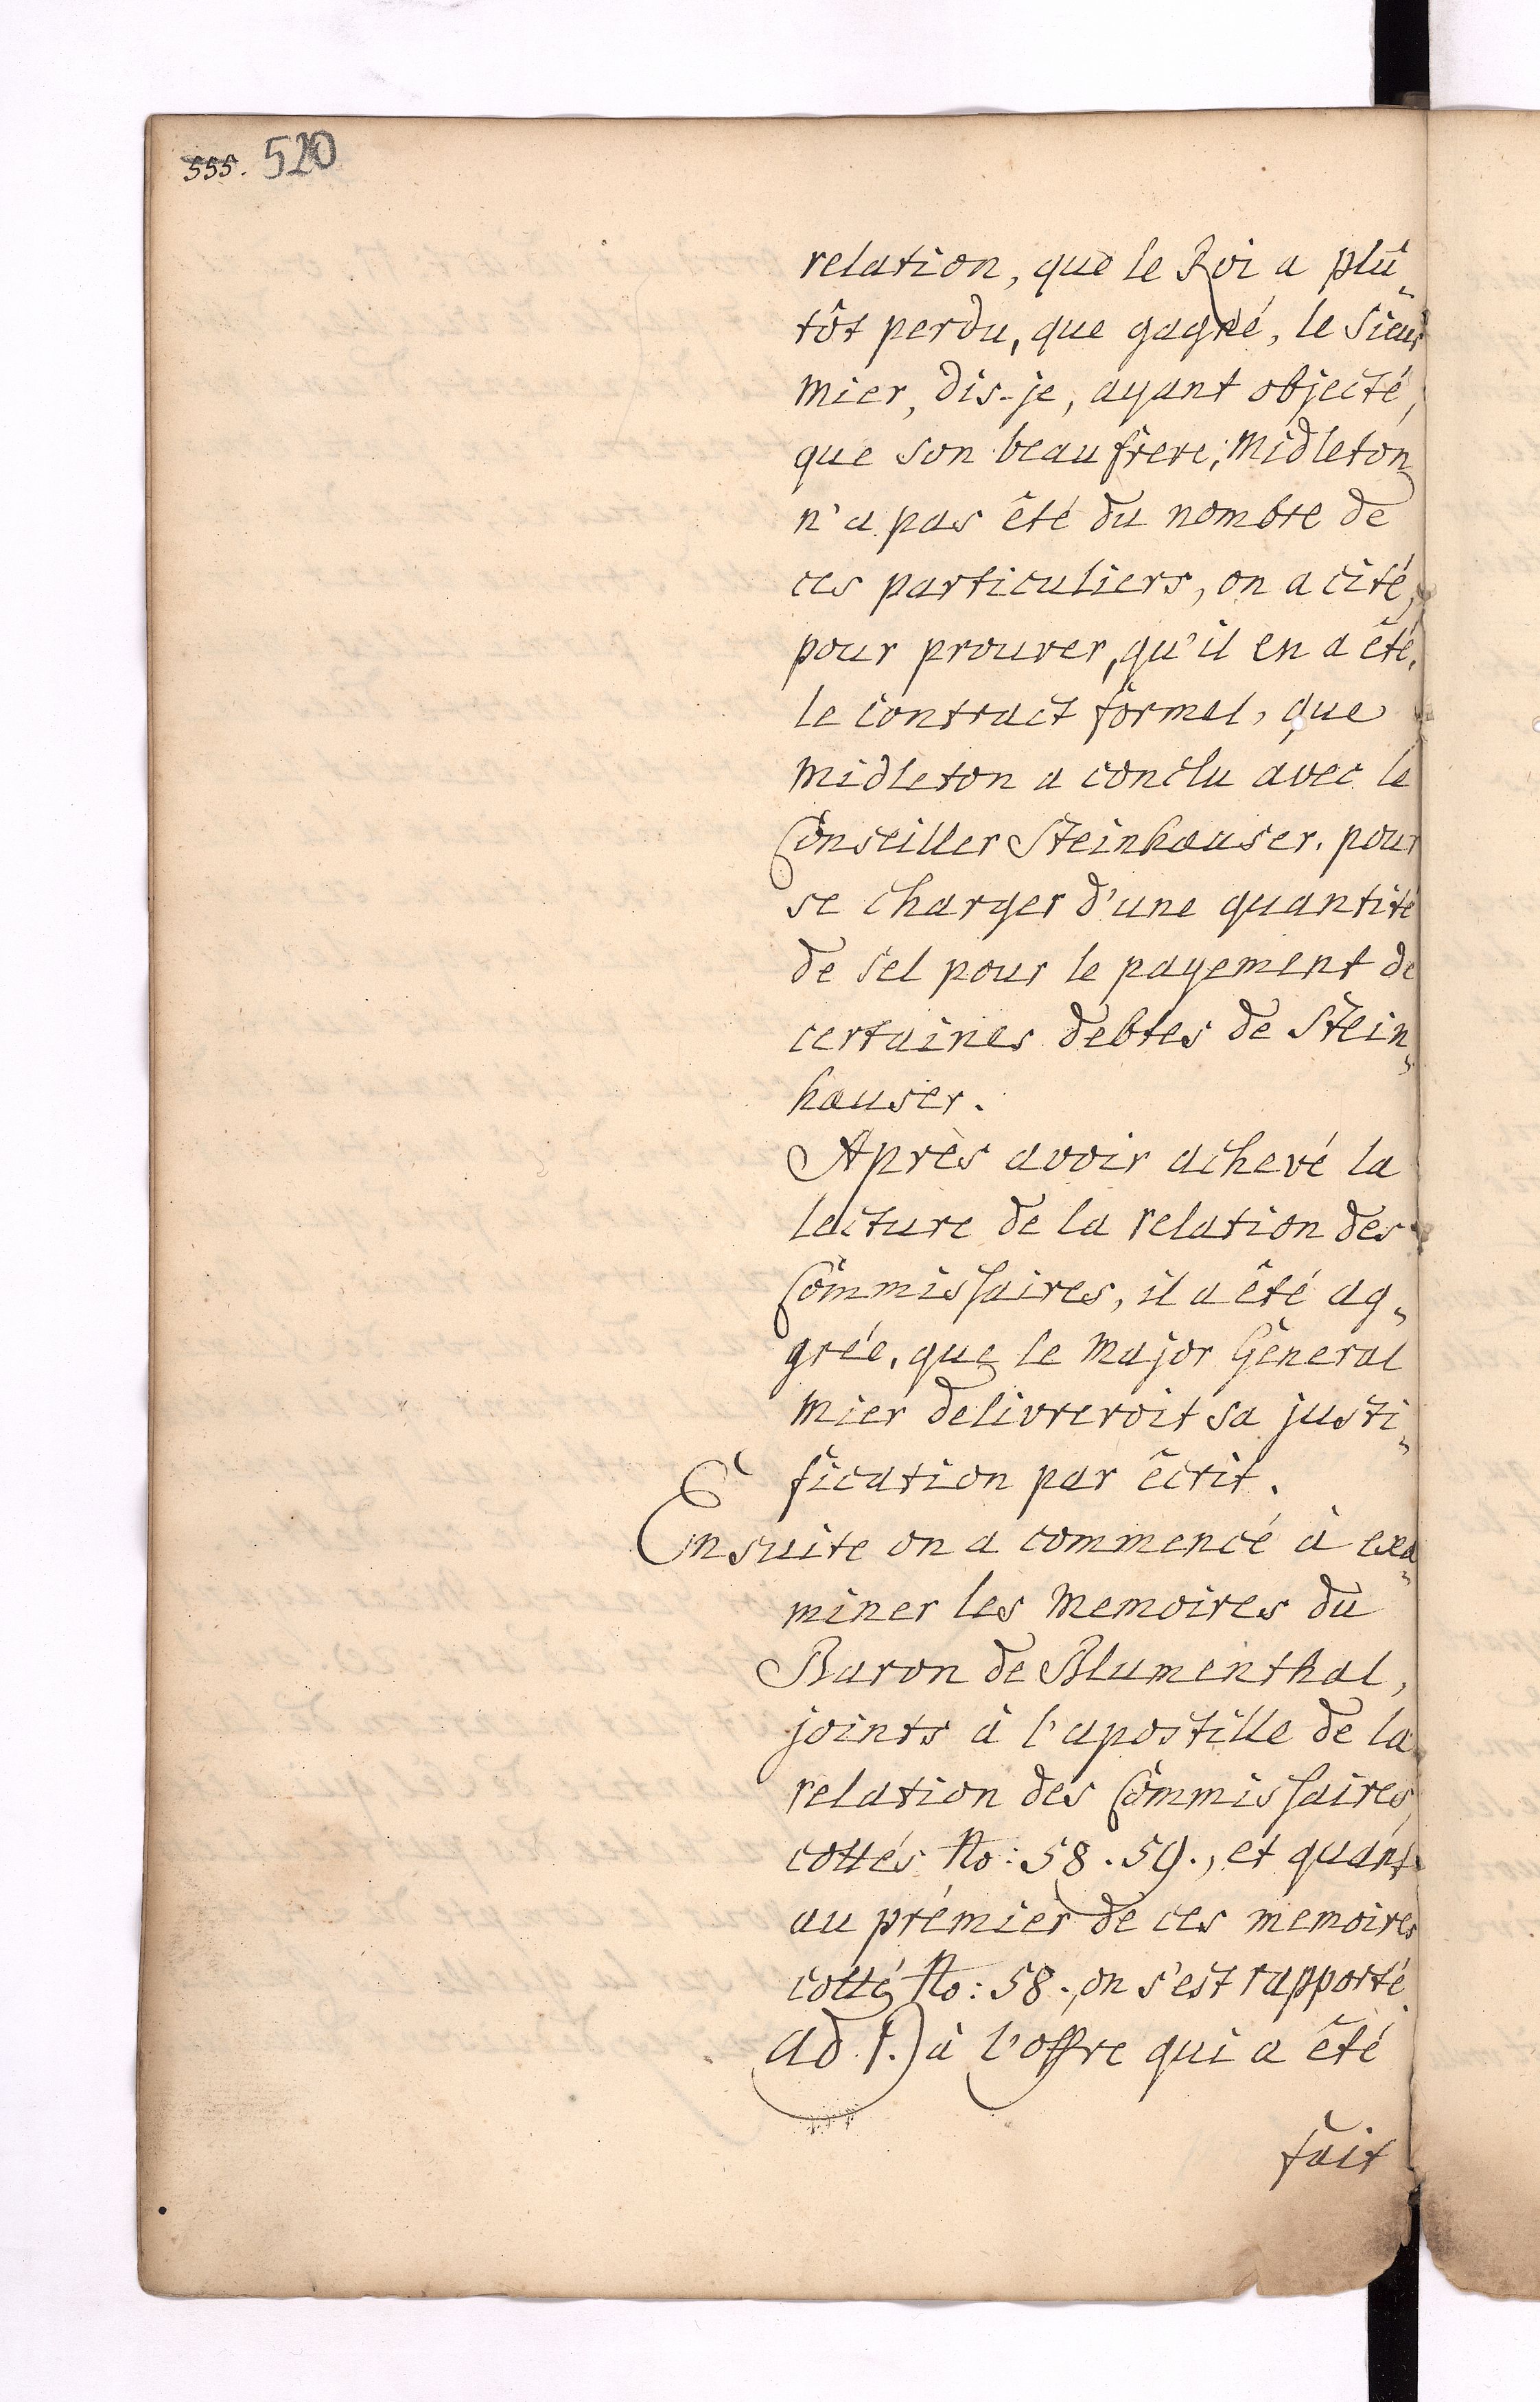 555. 520
relation, que le Roi a plû¬
tôt perdu, que gagné, le Sieur
Mier, dis-je, ayant objecté,
que son beau frere, Midleton
n'a pas êté du nombre de
ces particuliers, on a cité,
pour prouver, qu'il en a êté,
le contract formel, que
Midleton a conclu avec le
Conseiller Steinhauser, pour
se charger d'une quantité
de sel pour le payement de
certaines debtes de Stein¬
hauser.
Après avoir achevé la
lecture de la relation des
Commissaires, il a êté ag¬
grée, que le Major General
Mier delivreroit sa justi¬
fication par êcrit.
Ensuite on a commencé à exa¬
miner les Memoires du
Baron de Blumenthal,
joints à l'apostille de la
relation des Commissaires,
cottés No: 58. 59., et quant
au prémier de ces memoires
cotté No: 58., on s'est rapporté
ad 1.) à l'offre qui a êté
fait